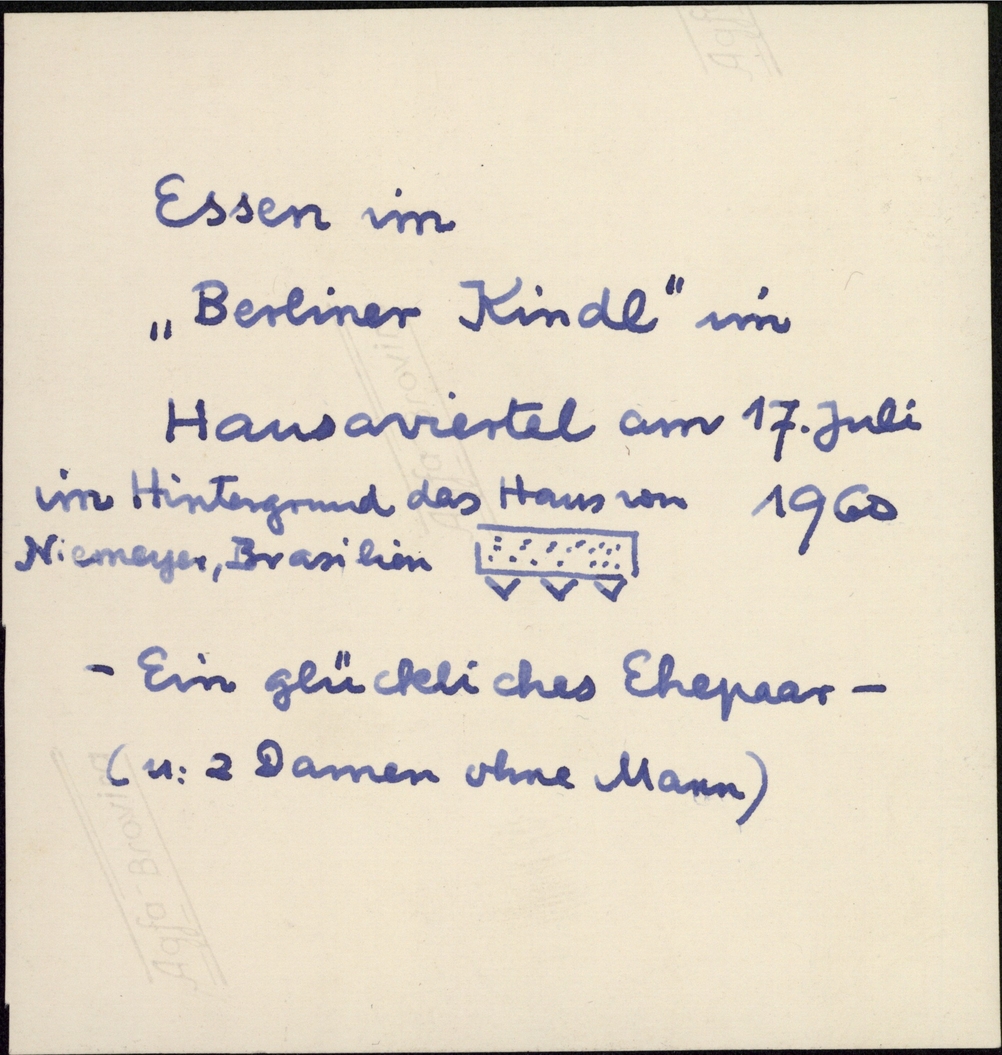 Essen im
„Berliner Kindl“ im
Hansaviertel am 17. Juli
1960
im Hintergrund das Haus von
Niemeyer, Brasilien
- Ein glückliches Ehepaar -
(u: 2 Damen ohne Mann)
Agfa Brovira
Agfa Brovira
Agfa